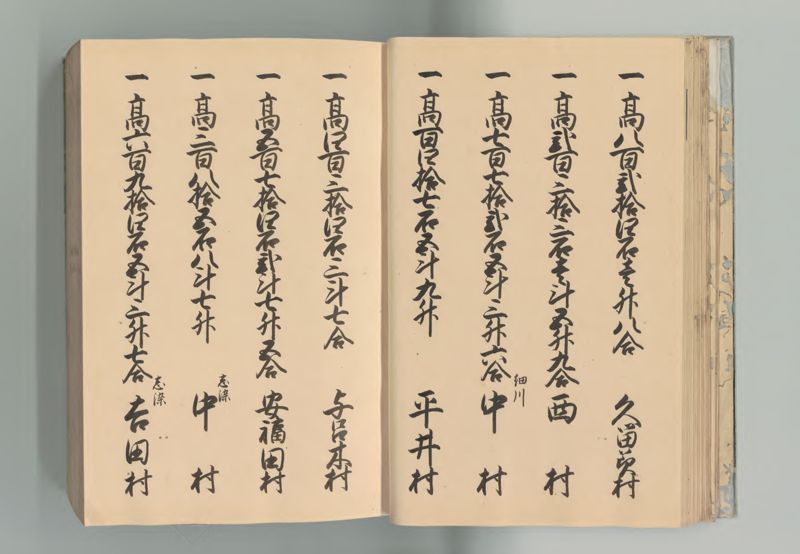 一 髙八百弐拾四石壱升八合 久留美村
一 髙弐百三拾三石壱斗五升九合 西村
一 髙七百七拾弐石五斗三升六合 細川 中村
一 髙百四拾七石五斗九升 平井村
一 髙四百三拾四石三斗七合 与呂木村
一 髙五百七拾四石弐斗七升五合 安福田村
一 髙三百八拾五石八斗七升 志染 中村
一 髙六百九拾四石五斗三升七合 志染 吉田村